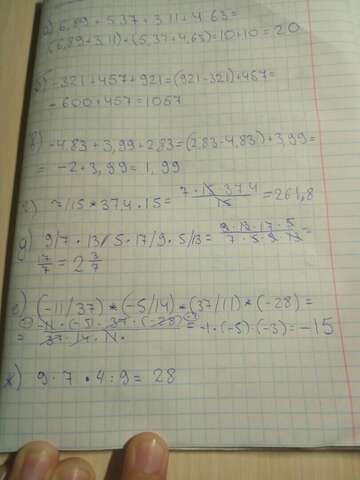 а) 6,89 + 5,37 + 3,11 + 4,63 =
(6,89 + 3,11) + (5,37 + 4,63) = 10 + 10 = 20
б) -321 + 457 + 921 = (921 - 321) + 457 =
- 600 + 457 = 1057
в) -4,83 + 3,99 + 2,83 = (2,83 - 4,83) + 3,99 =
= -2 + 3,99 = 1,99
г) 7/15 * 37,4 · 15 = 7 · 15 · 37,4 / 15 = 261,8
д) 9/7 · 13/5 · 17/9 · 5/13 = 9 · 13 · 17 · 5 / 7 · 5 · 9 · 13 =
17/7 = 2 3/7
е) (-11/37) * (-5/14) * (37/11) * (-28) =
= -11 · (-5) · 37 · (-28) / 37 · 14 · 11 · = -1 · (-5) · (-3) = -15
ж) 9 · 7 · 4 : 9 = 28